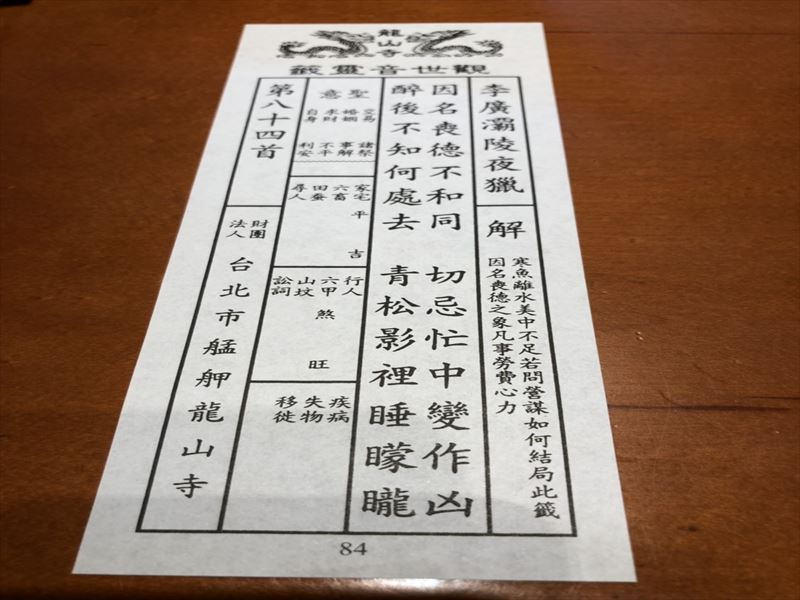 龍山寺
觀世音靈籤
李廣灞陵夜獵
解
寒魚離水美中不足若問營謀如何結局此籤
因名喪德之象凡事勞費心力
因名喪德不和同 切忌忙中變作凶
醉後不知何處去 青松影裡睡矇矓
聖意
交易 諸祭
婚姻 事解
求財 不平
自身 利安
家宅
六畜
田蚕
尋人
平 吉
行人
六甲
山墳
訟詞
煞 旺
疾病
失物
移徙
第八十四首
財團
法人
台北市艋舺龍山寺
84